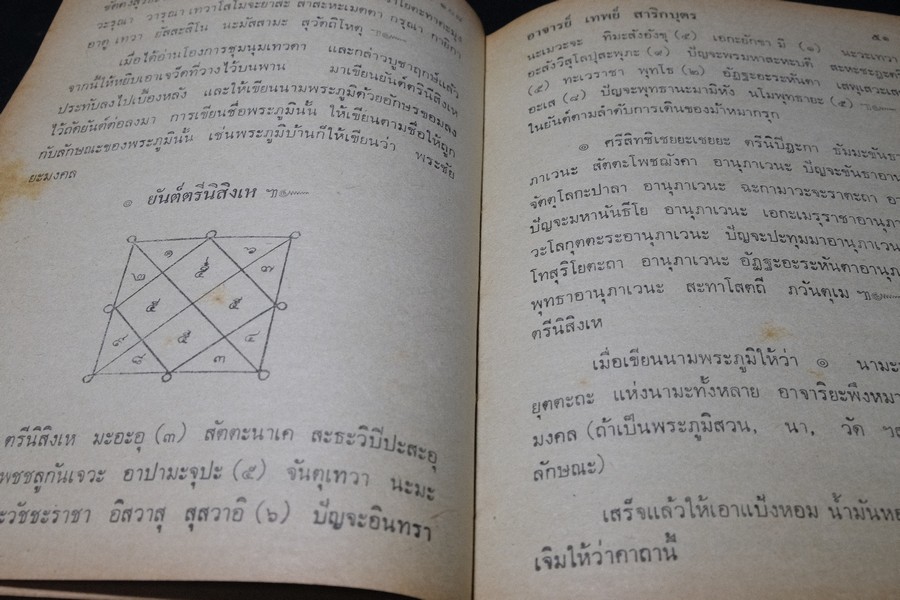 วะรุณา วารุณา เทวาโสโมจะยาสะ
อาคู เทวา ยัสสะสิโน นะมัสสามะ สุวัตถิโหตุ
เมื่อได้อ่านโองการชุมนุมเทวดา และกล่าวบูชาฤกษ์แล้ว
จากนี้ให้หยิบเอาเจว็ดที่วางไว้บนพาน มาเขียนยันต์ตรีนิสิงเห
ประทับลงไปเบื้องหลัง และให้เขียนนามพระภูมิด้วยอักษรขอมลง
ไว้ถัดยันต์ต่อลงมา การเขียนชื่อพระภูมินั้น ให้เขียนตามชื่อให้ถูก
กับลักษณะของพระภูมินั้น เช่นพระภูมิบ้านก็ให้เขียนว่า พระชัย
ยะมงคล
๏ ยันต์ตรีนิสิงเห
๑ ๖
๒ ๕ ๗
๕ ๕
๙ ๕ ๔
๘ ๓
ตรีนิสิงเห มะอะอุ (๓) สัตตะนาเค สะธะวิปีปะสะอุ
พชชลูกันเจวะ อาปามะจุปะ (๕) จันตุเทวา นะมะ
ะวัชชะราชา อิสวาสุ สุสวาอิ (๖) ปัญจะอินทรา
อาจารย์ เทพย์ สาริกบุตร
๕๑
นะเมวะจะ ทิมะสังอังขุ (๔) เอกะยักขา มิ (๑) นะวะเทวา
อะสังวิสุโลปุสะพุภะ (๙) ปัญจะพรหมาสะหะบดี
(๕) ทะเวราชา พุทโธ (๒) อัฏฐะอะระหันตา
อะเส (๘) ปัญจะพุทธานะมามิหัง นโมพุทธายะ (๕)
ในยันต์ตามลำดับการเดินของม้าหมากรุก
๏ ศรีสิทธิเชยยะเชยยะ ตรีนิปิฎะกา ธัมมะขันธา
ภาเวนะ สัตตะโพชฌังคา อานุภาเวนะ ปัญจะขันธาอาน
จัตตุโลกะปาลา อานุภาเวนะ ฉะกามาวะจะราตะถา อา
ปัญจะมหานันธีโย อานุภาเวนะ เอกะเมรุราชาอานุภา
วะโลกุตตะระอานุภาเวนะ ปัญจะปะทุมมาอานุภาเวน
โทสุริโยตะถา อานุภาเวนะ อัฏฐะอะระหันตาอานุภ
พุทธาอานุภาเวนะ สะทาโสตถี ภวันตุเม
ตรีนิสิงเห
เมื่อเขียนนามพระภูมิให้ว่า ๏ นามะ
ยุตตะถะ แห่งนามะทั้งหลาย อาจาริยะพึงหมา
มงคล (ถ้าเป็นพระภูมิสวน, นา, วัด
ลักษณะ)
เสร็จแล้วให้เอาแป้งหอม น้ำมันหอ
เจิมให้ว่าคาถานี้